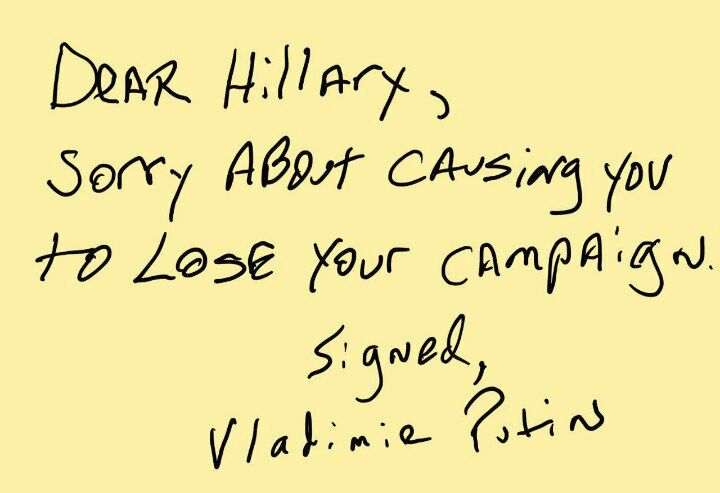 Dear Hillary,
Sorry About causing you
to Lose your campaign.
signed,
Vladimir Putin